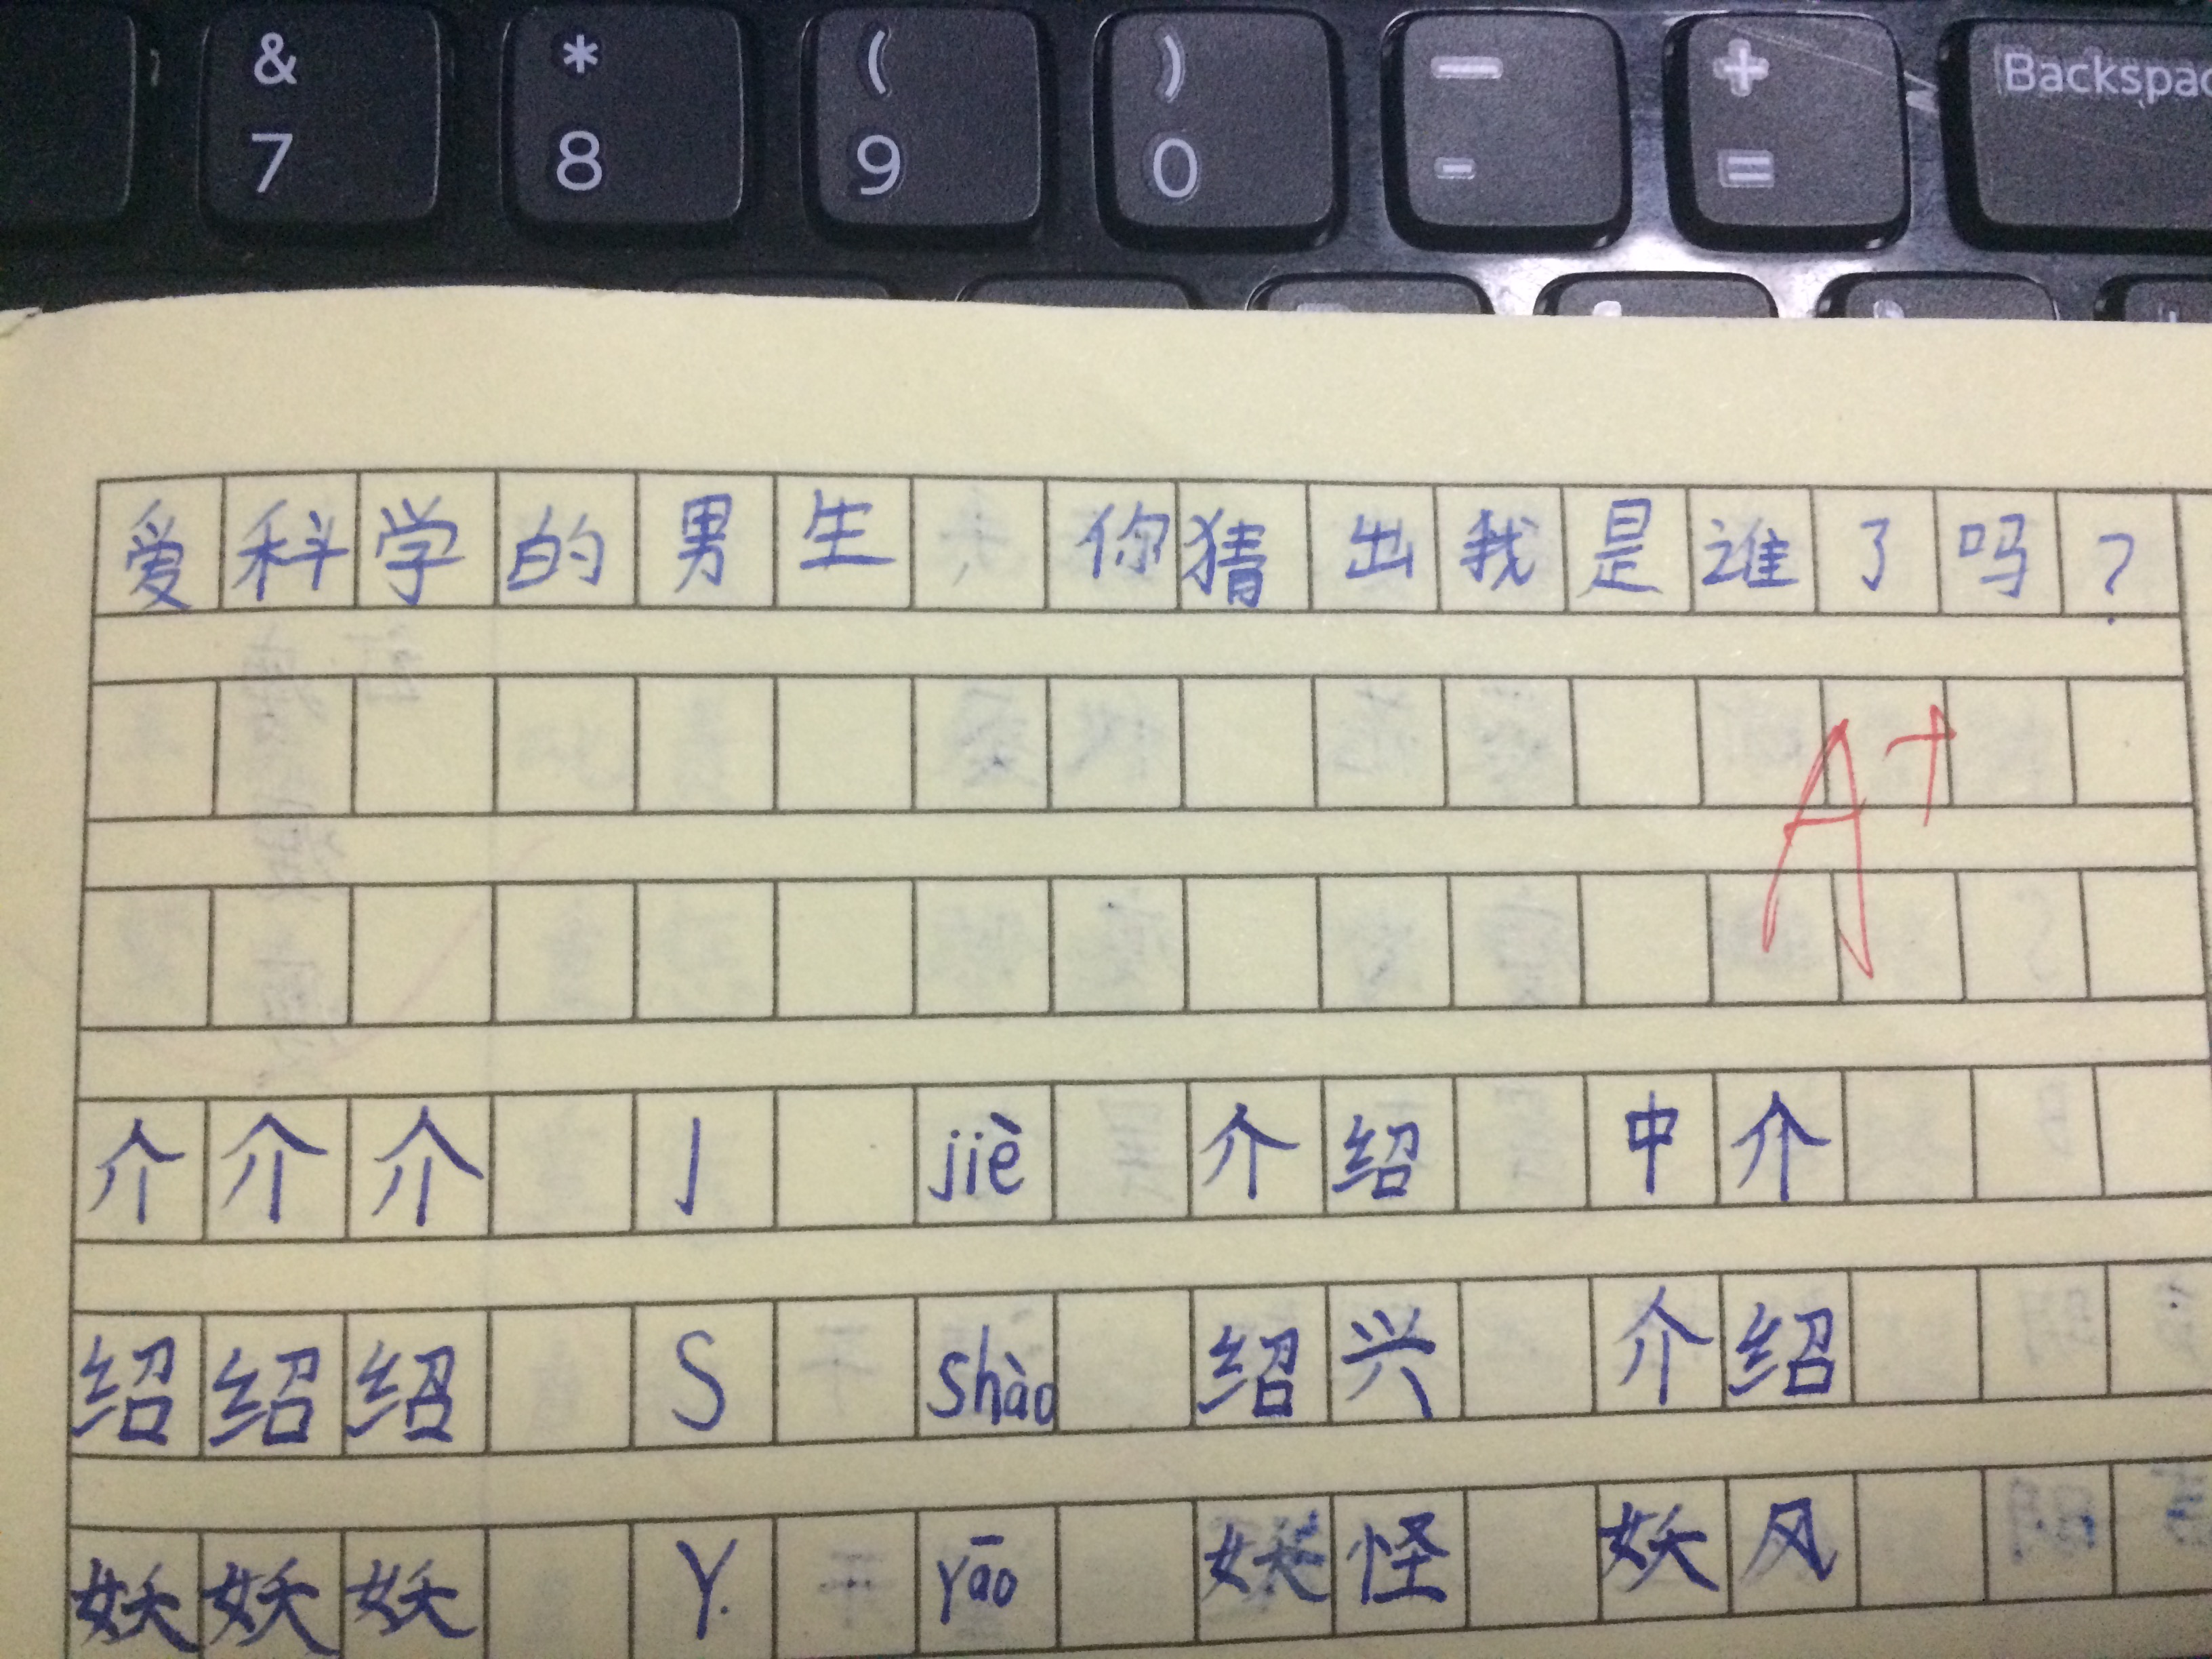 & * ( ) — +
7 8 9 0 - = Backspac
爱科学的男生 你猜出我是谁了吗?
A+
介介介 J jiè 介绍 中介
绍绍绍 S shào 绍兴 介绍
妖妖妖 Y yāo 妖怪 妖风